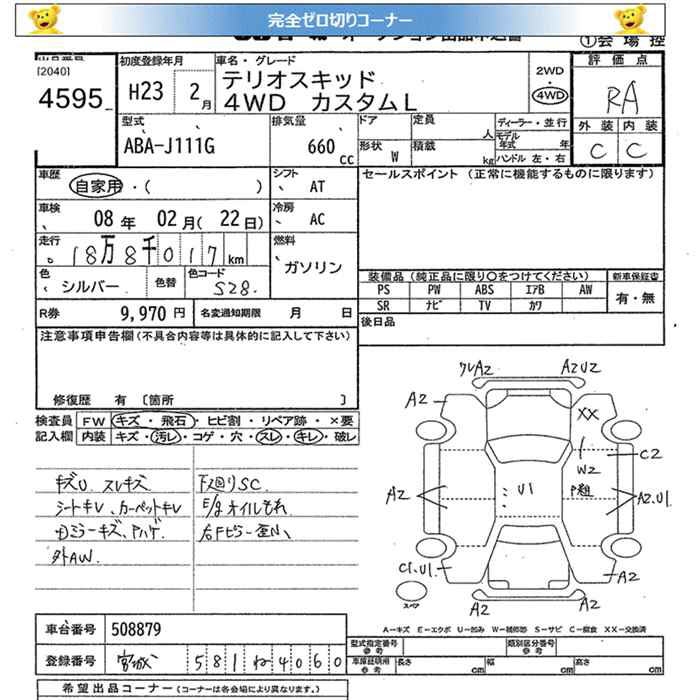 完全ゼロ切りコーナー
[2040]
4595
初度登録年月
H23 2月
車名・グレード
テリオスキッド
4WD カスタムL
2WD
・
4WD
評価点
RA
外装 内装
C C
型式
ABA-J111G
排気量
660 cc
ドア
定員
人
ディーラー・並行
モデル年式 年
形状 W
積載 kg
ハンドル 左・右
車歴
自家用・( )
シフト
AT
セールスポイント (正常に機能するものに限ります)
車検
08年 02月(22日)
冷房
AC
走行
18万8千017km
燃料
ガソリン
色
シルバー
色替
色コード
S28.
装備品(純正品に限り○をつけてください)
新車保証書
PS PW ABS エアB AW
有・無
SR ナビ TV カワ
R券 9,970円
名変通知期限 月 日
後日品
注意事項申告欄(不具合内容等は具体的に記入して下さい)
修復歴 有 〔箇所 〕
検査員記入欄
FW キズ・飛石・ヒビ割・リペア跡・×要
内装 キズ・汚レ・コゲ・穴・スレ・キレ・破レ
キズU スレキズ
シートキレ、カーペットキレ
ミラーキズ、Pハゲ
外AW
下廻りSC
E/gオイルもれ
右Fピラー歪ミ
クレA2
A2U2
A2
XX
C2
W2
P粗
U1
A2
A2.U1
C1.U1
A2
A2
A2
スペア
A-キズ E-エクボ U-凹み W-補修跡 S-サビ C-腐食 XX-交換済
車台番号 508879
登録番号 宮城 581 ね 4060
型式指定番号 参考
類別区分番号 参考
車庫証明用 参考
長さ cm
幅 cm
高さ cm
希望出品コーナー(コーナーは各会場により異なります。)